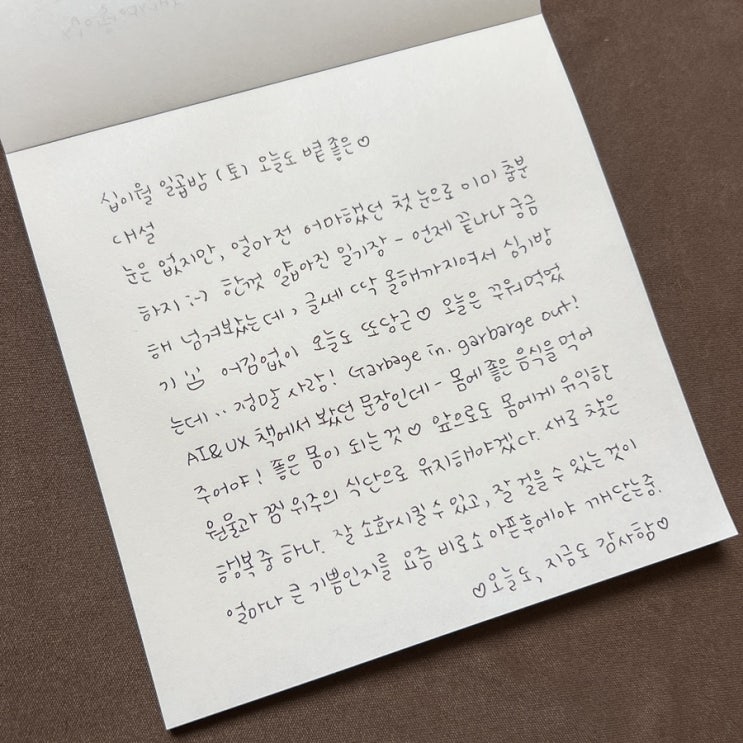 십이월 일곱밤 (토) 오늘도 볕 좋은♡
대설
눈은 없지만, 얼마전 어마했던 첫 눈으로 이미 충분
하지 :-) 한껏 얇아진 일기장 - 언제 끝나나 궁금
해 넘겨봤는데, 글쎄 딱 올해까지여서 심기방
기 몸 어김없이 오늘도 또당근♡ 오늘은 구워먹었
는데.. 정말 사랑! Garbage in. garbarge out!
AI&UX 책에서 봤던 문장인데- 몸에 좋은 음식을 먹어
주어야! 좋은 몸이 되는 것♡ 앞으로도 몸에게 유익한
원물과 찜 위주의 식단으로 유지해야겠다. 새로 찾은
행복 중 하나. 잘 소화시킬 수 있고, 잘 걸을 수 있는 것이
얼마나 큰 기쁨인지를 요즘 비로소 아픈후에야 깨닫는중.
♡오늘도, 지금도 감사함♡